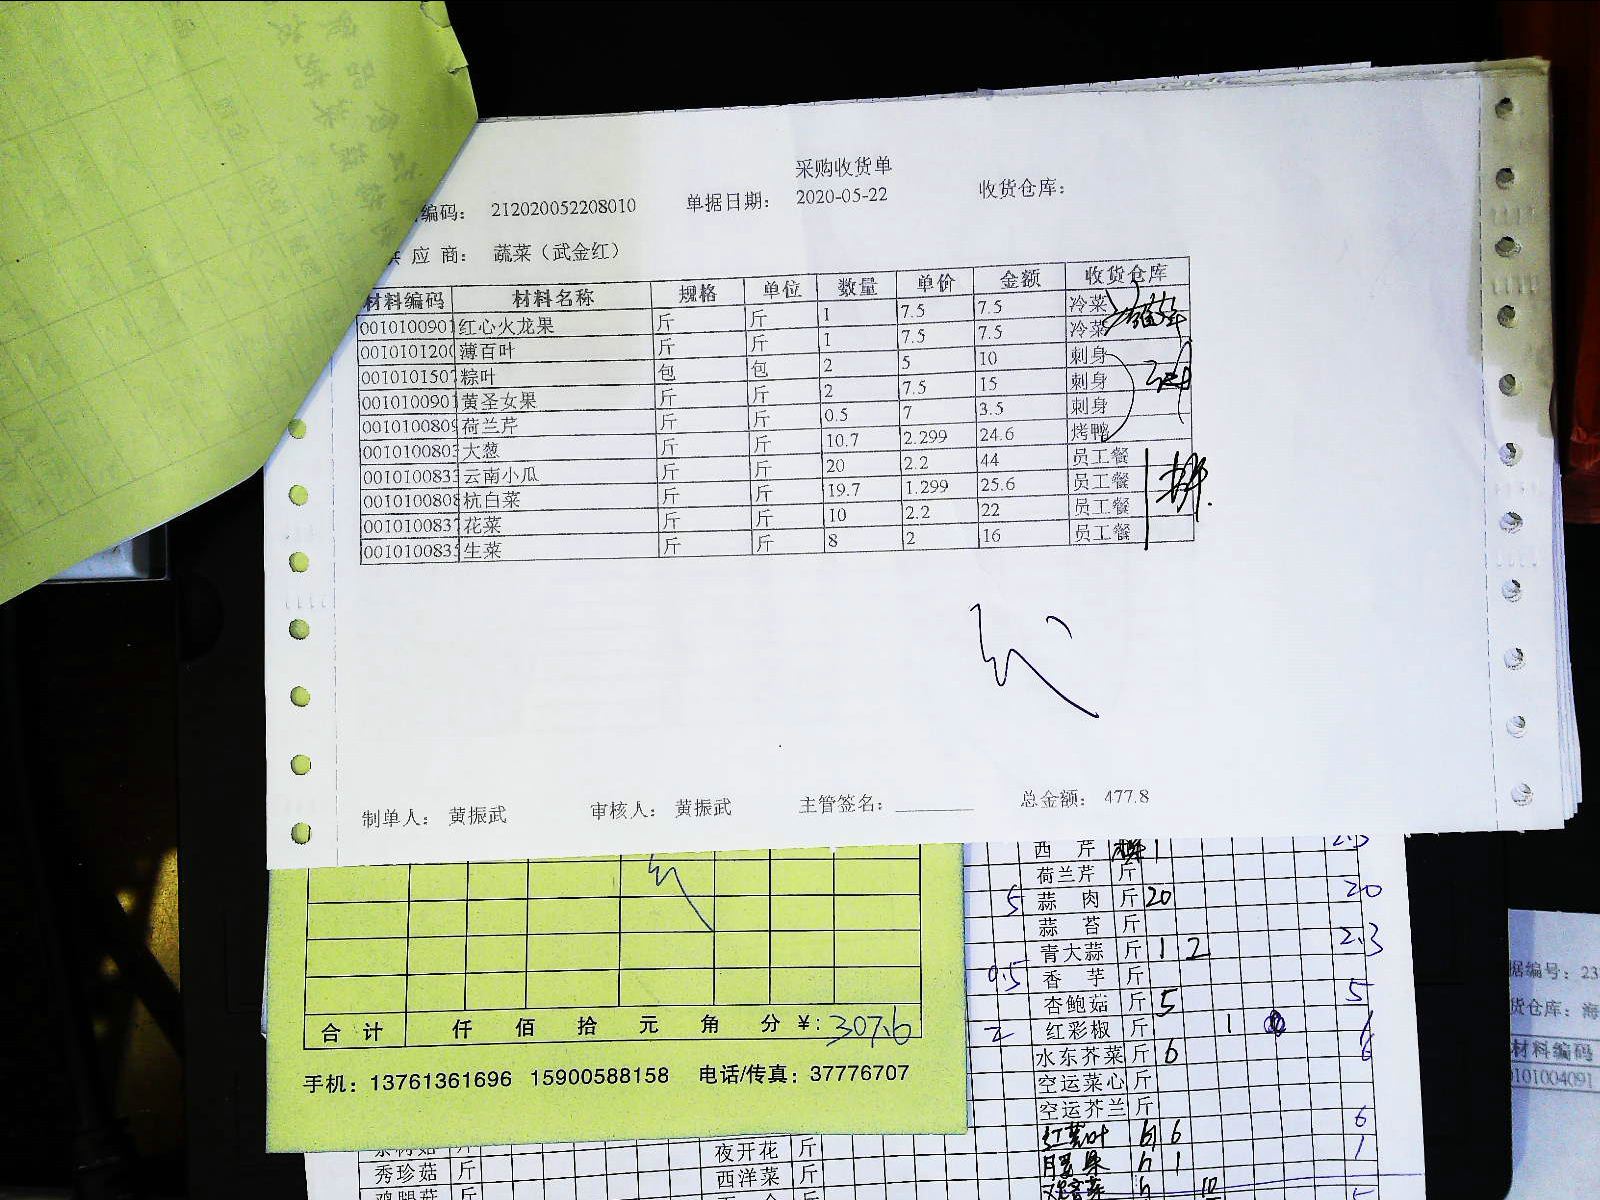 采购收货单
编码： 212020052208010 单据日期： 2020-05-22 收货仓库：
应 商： 蔬菜（武金红）
材料编码 材料名称 规格 单位 数量 单价 金额 收货仓库
0010100901 红心火龙果 斤 斤 1 7.5 7.5 冷菜
001010120 薄百叶 斤 斤 1 7.5 7.5 冷菜
0010101507 粽叶 包 包 2 5 10 刺身
0010100901 黄圣女果 斤 斤 2 7.5 15 刺身
001010080 荷兰芹 斤 斤 0.5 7 3.5 刺身
0010100803 大葱 斤 斤 10.7 2.299 24.6 烤鸭
001010083 云南小瓜 斤 斤 20 2.2 44 员工餐
0010100808 杭白菜 斤 斤 19.7 1.299 25.6 员工餐
0010100837 花菜 斤 斤 10 2.2 22 员工餐
001010083 生菜 斤 斤 8 2 16 员工餐
制单人： 黄振武 审核人： 黄振武 主管签名： 总金额： 477.8
合 计 仟 佰 拾 元 角 分 ¥: 307.6
手机：13761361696 15900588158 电话/传真：37776707
西 芹 1 2.5
荷兰芹 斤
5 蒜 肉 斤 20 20
蒜 苔 斤
青大蒜 斤 1 2 2.3
0.5 香 芋 斤
杏鲍菇 斤 5 5
2 红彩椒 斤 1 1
水东芥菜 斤 6 6
空运菜心 斤
空运芥兰 斤
6 6
1 1
夜开花 斤
秀珍菇 斤 西洋菜 斤
鸡腿菇 斤
据编号：23
货仓库：海
材料编码
0101004091